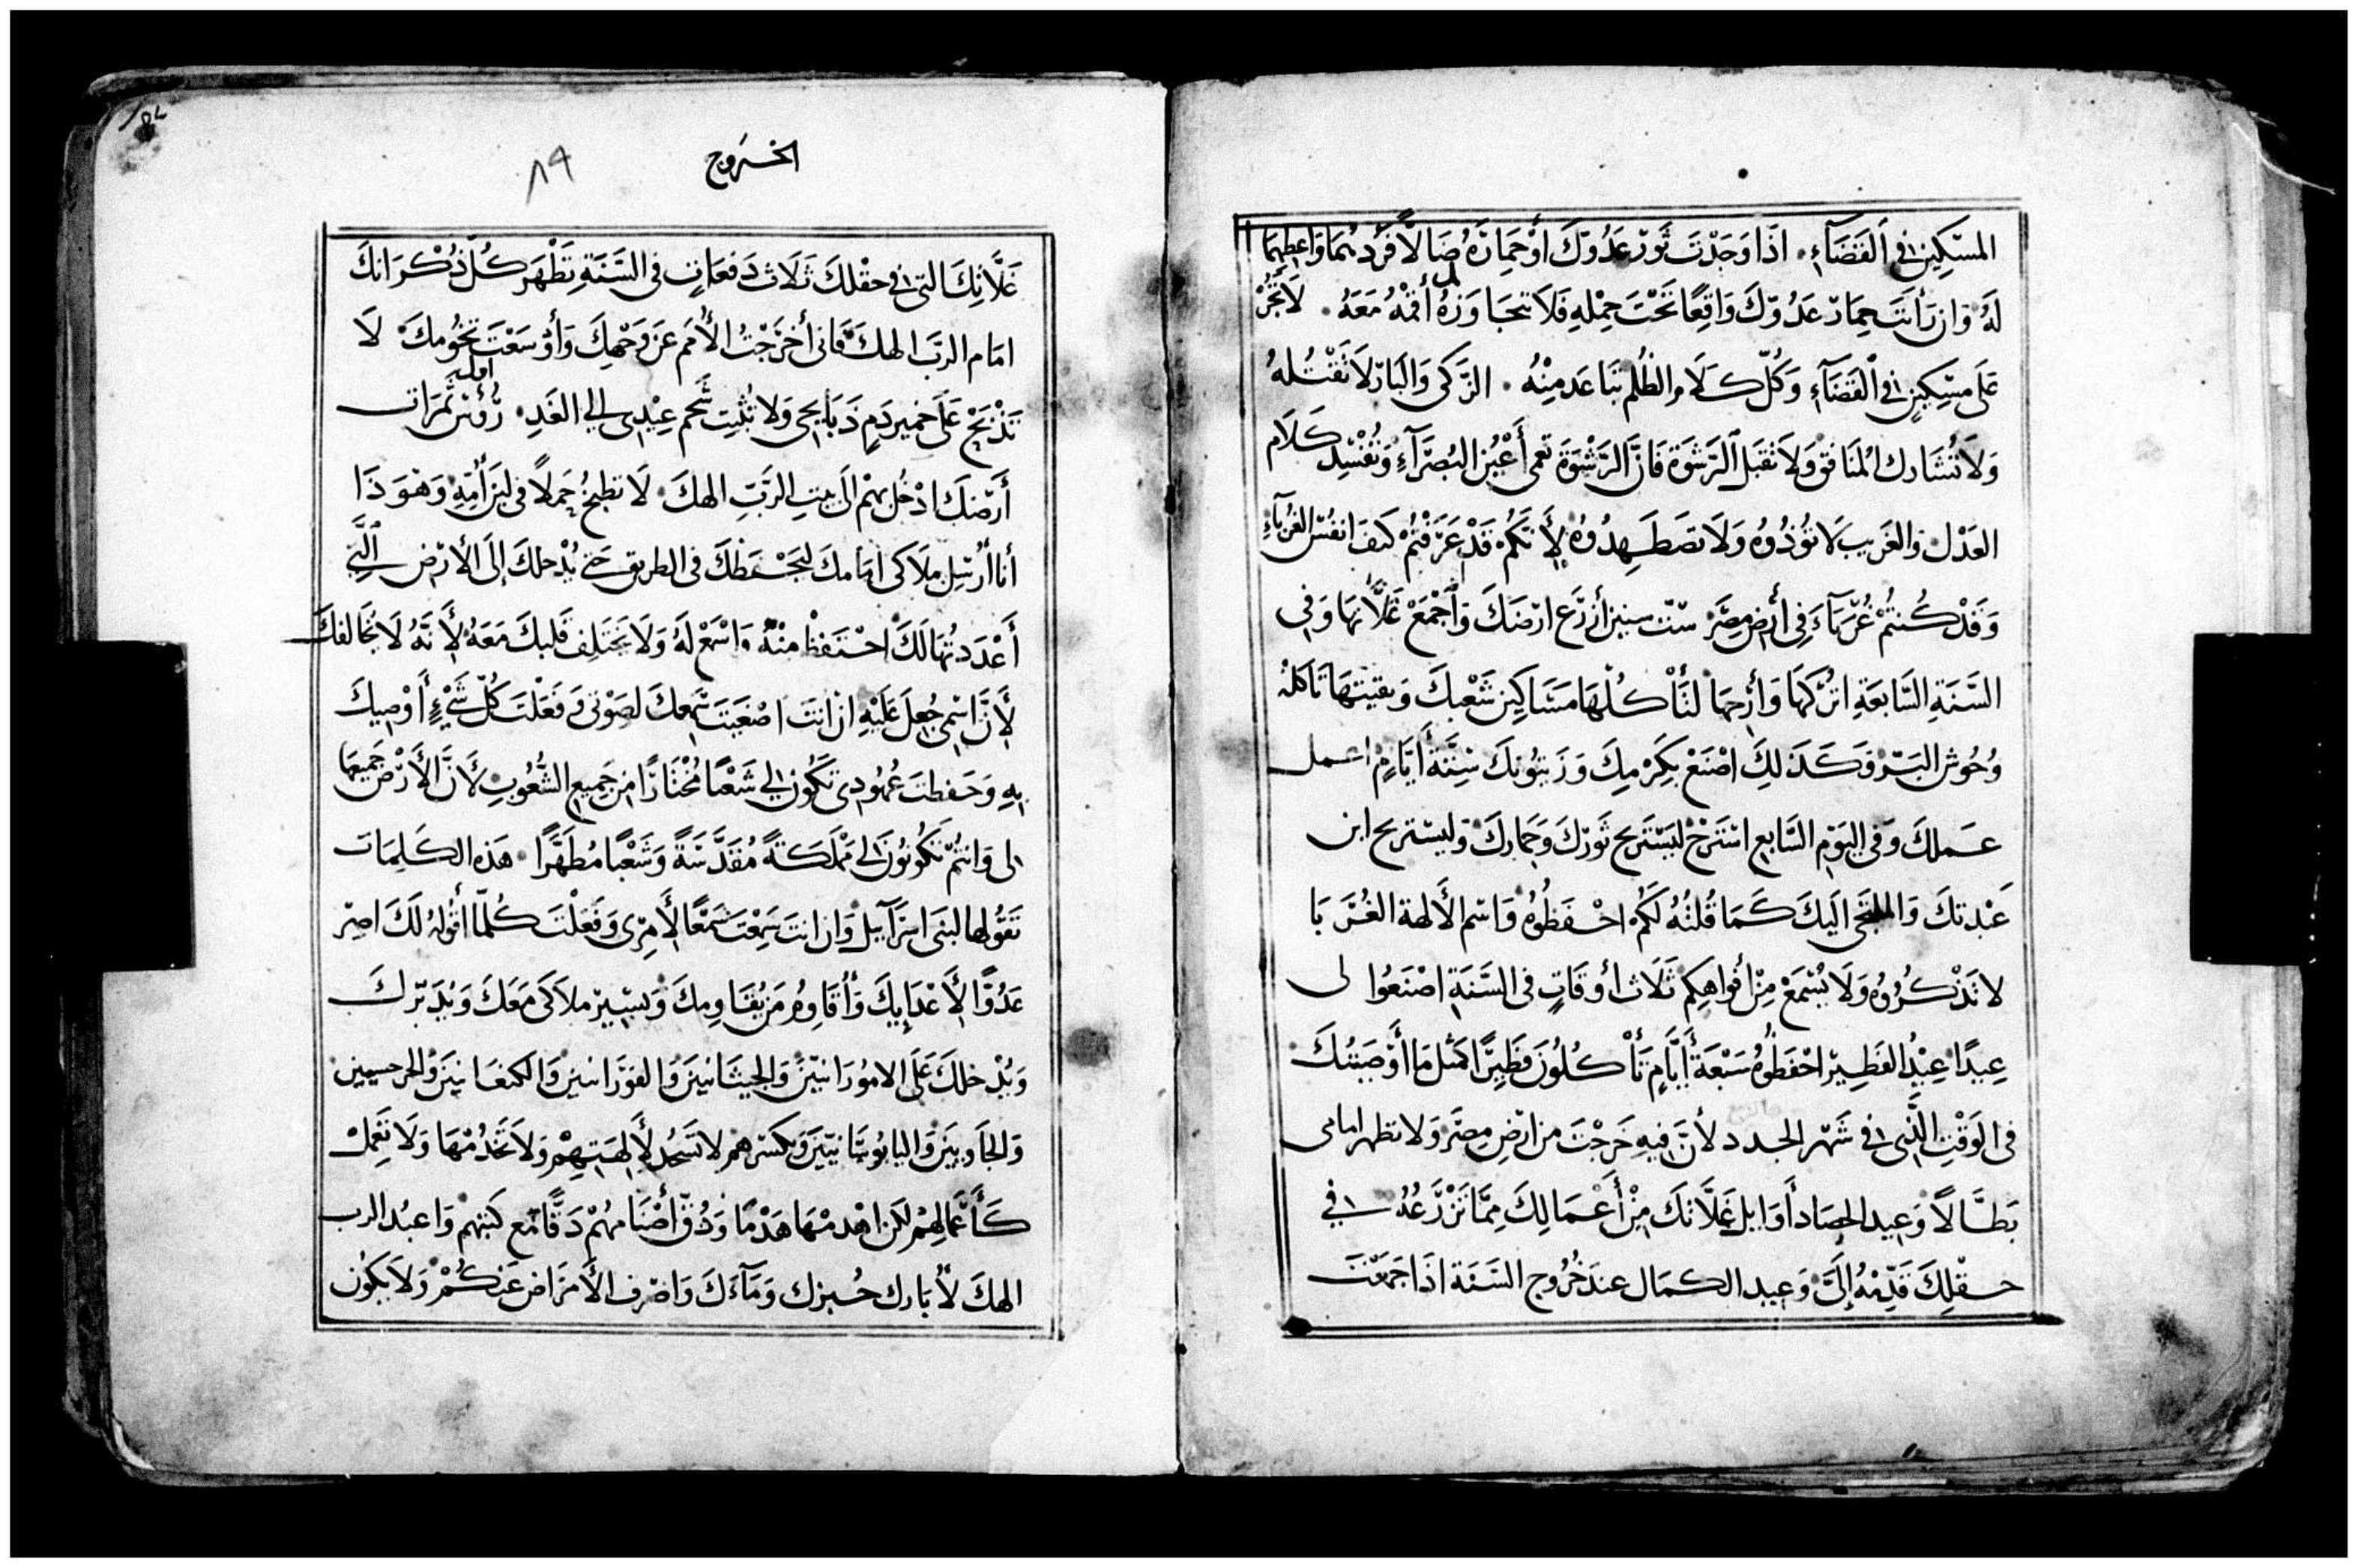 المسْكِين في اَلقَضَآءِ. اذَا وَجَدْتَ ثَورْ عَدُوّكَ اوْ حِمَارَهُ ضَالًّا فَرُدهُمَا وَاعطِهِمَا
لَهُ وَان رَأيتَ حِمَارْ عَدُوّكَ وَاقِعًا تَحْتَ حِمْلِهِ فَلاَ تتجَاوَزهُ بل أقمْهُ مَعَهُ. لاَ تَجُرْ
عَلَى مسْكِينٍ في اْلقَضَآءِ وَكُلّ كَلَام الظُلم تبَاعَد مِنْهُ. الزَكى وَالبَارّ لاَ تَقْتُلهُ
وَلاَ تُشَارك المُنَافِق وَلاَ تَقبَل اَلرَشوَة فَانَّ الرَشْوَة تعمى أَعْيُن البُصَرَآءِ وَتُفْسِد كَلَام
العَدْل وَالغَريب لاَ تؤذُوهُ وَلاَ تضَطَهِدُوهُ لِأَنّكُمْ قَدْ عَرَفْتُمْ كَيفَ انفُسْ الغُرَبآءِ
وَقَدْ كُنتُمْ غُرَبَآءَ فِي أرضِ مِصْرَ ستّ سنين أزرَع ارْضَكَ وَاَجْمَعْ غَلاَّتهَا وَفِي
السَّنَةِ السَّابعَةِ اتْرُكهَا وَأرِحهَا لتَأْكُلهَا مَسَاكِين شَعْبكَ وَبقيتهَا تَاكلهُ
وُحُوش البَرّ وَكَذَلِكَ اصْنَعْ بِكَرْمِكَ وَزَيتُونكَ سِتَّةَ أَيَّامٍ اعمل
عَملكَ وَفي اليَوْمِ السَّابع اسْتَرِحْ ليَسْتَريح ثَورْكَ وَحِمَاركَ وَليسْتريح ابن
عَبْدتكَ وَالملتجَى اليَكَ كَمَا قُلتُهُ لكُمْ احْفَظُوهُ وَاسْم الأَلهة الغُرَبَا
لا تَذْكُرُوهُ وَلاَ يُسْمَعْ مِنْ أفوَاهِكِم ثَلَاث أوقَاتٍ في السَّنَةِ اصْنَعُوا لى
عِيدًا عِيْدُ الفَطِيرْ احْفَظُوهُ سَبْعَةَ أَيَّامٍ تَأْكُلُونَ فَطِيرًا كمثل مَا أوْصَيتُكَ
في الوَقْتِ الَّذي في شَهْر الجدد لأنَّ فِيهِ خَرَجْتَ من ارْضِ مِصْرَ وَلا تظهر امامى
بَطَّالاً وَعِيد الحصَاد أَوَايل غَلاَّتكَ مِنْ أَعْمَالِكَ مِمَّا تَزْرَعُهُ في
حَقْلِكَ قَدِّمْهُ إِلَىَّ وَعِيد الكمَال عندَ خُرُوج السَّنَة اذَا جَمَعْتَ
الخروج
٨٩
غَلاَّتِكَ التى في حقْلكَ ثَلاَث دَفعَاتٍ فى السَّنَةِ تَظْهَر كُلّ ذُكْرَانكَ
امَام الربّ الهكَ فَانى أخرَجْتُ الأُمَم عَن وَجْهِكَ وَأوْسَعْتَ تخُومكَ. لَا
تَذْبَحْ عَلَى خَمير دَمِ ذبَايحى وَلا تُثبِت شَحم عِيْدى إلى الغَدِ. رُؤس اول ثَمرَات
أَرْضكَ ادْخُل بهمْ الَى بيت الرَبّ الهكَ. لاَ تطبخُ حِملاً في لبَن أُمّهِ وَهوَ ذَا
أنا أُرْسل مَلاَكى امَامكَ ليَحْفَظكَ في الطريق حَتى يُدْخلكَ إِلَى الأرْض اَلَّتِي
أَعْدَدتُهَا لَكَ احْتَفظْ منْهُ وَاسْمَعْ لَهُ وَلاَ يَختَلِف قَلبكَ مَعَهُ لِأَنَّهُ لاَ يخَالفكَ
لِأَنَّ اسْمِى جُعِلَ عَلَيْهِ ان انتَ اصْغَيتَ سَمعكَ لصَوْتى وَفَعَلْتَ كُلّ شَيْءٍ أُوْصِيكَ
بهِ وَحَفظتَ عُهُودى تكُون لي شَعْبًا مُخْتَارًا مِن جَمِيع الشُّعُوبِ لأَنَّ الأَرْضَ جَميعهَا
لى وَانتُمْ تَكُونُونَ لى مَمْلَكَةً مُقَدَّسَةً وَشَعْبًا مُطَهَّرًا. هَذه الكَلِمَات
تَقُولهَا لبَنى اسْرَآييل وَان انتَ سَمِعْتَ سَمْعًا لأَمْرى وَفَعَلْتَ كُلّمَا أقُولهُ لَكَ اصِرْ
عَدُوًّا لِأَعْدَايكَ وَأُقَاوِمُ مَن يُقَاومكَ وَيسِيرْ ملاَكى مَعَكَ وَيُدَبّرك
وَيُدْخلكَ عَلَى الامُورَانيّينَ وَالحيثَانيّينَ وَالفَوْرَانيين وَالكنعَانيينَ وَالجرحسيين
وَالحَاوِيينَ وَاليَابُوسَانيّينَ وَيكسْرهمْ لا تَسْجُد لِأَلِهتِهِمْ وَلاَ تَخْدُمْهَا وَلاَ تَعْمِلْ
كَأَعْمَالهِمْ لَكن اهْدمْهَا هَدْمًا وَدُقّ أَصْنَامهُمْ دَقًّا مَع كَتبهمْ وَاعبُد الرب
الهكَ لأُبَارك خُبزك وَمَآءَكَ وَاصْرف الأَمرَاض عَنكُمْ وَلاَ يكُون